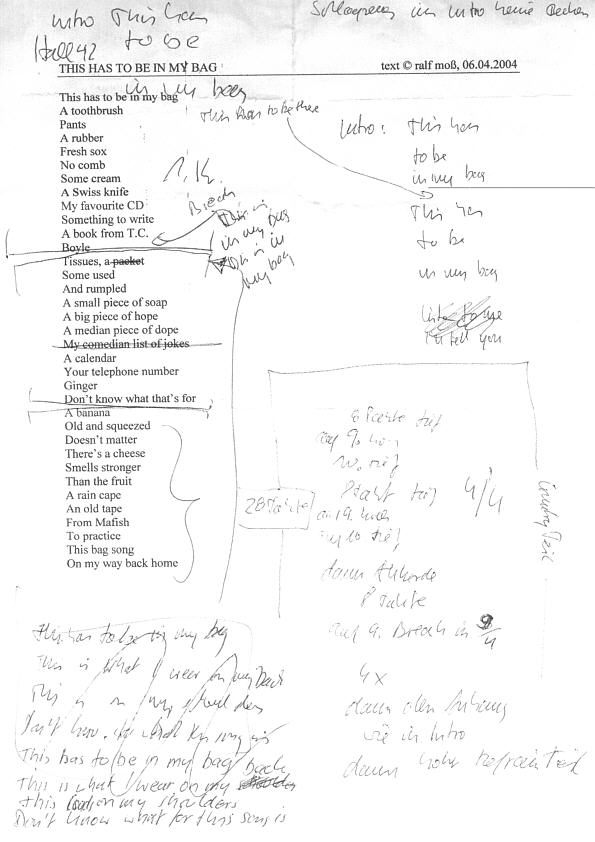 Intro This has
to be
in my bag
Schlagzeug im Intro keine Becken
Hall 42
THIS HAS TO BE IN MY BAG
text © ralf moß, 06.04.2004
This has to be in my bag
A toothbrush
Pants
A rubber
Fresh sox
No comb
Some cream
A Swiss knife
My favourite CD
Something to write
A book from T.C.
Boyle
Tissues, a packet
Some used
And rumpled
A small piece of soap
A big piece of hope
A median piece of dope
My comedian list of jokes
A calendar
Your telephone number
Ginger
Don't know what that's for
A banana
Old and squeezed
Doesn't matter
There's a cheese
Smells stronger
Than the fruit
A rain cape
An old tape
From Mafish
To practice
This bag song
On my way back home
This has to be there
Break
This is
in my bag
This is in
my bag
Intro: This has
to be
in my bag
This has
to be
in my bag
tell you
8 Takte tief
auf 9. hoch
10. tief
8 Takt tief
auf 9. hoch
10 tief
4/4
28 Takte
Country Teil
dann Akkorde
8 Takte
auf 9. Break in 9/4
4x
dann
wie in Intro
dann hoher Refrain Teil
This has to be in my bag
This is what I wear on my back
This is on my shoulders
Don't know
This has to be in my bag
This is what I wear on my back
this on my shoulders
Don't know what for this song is